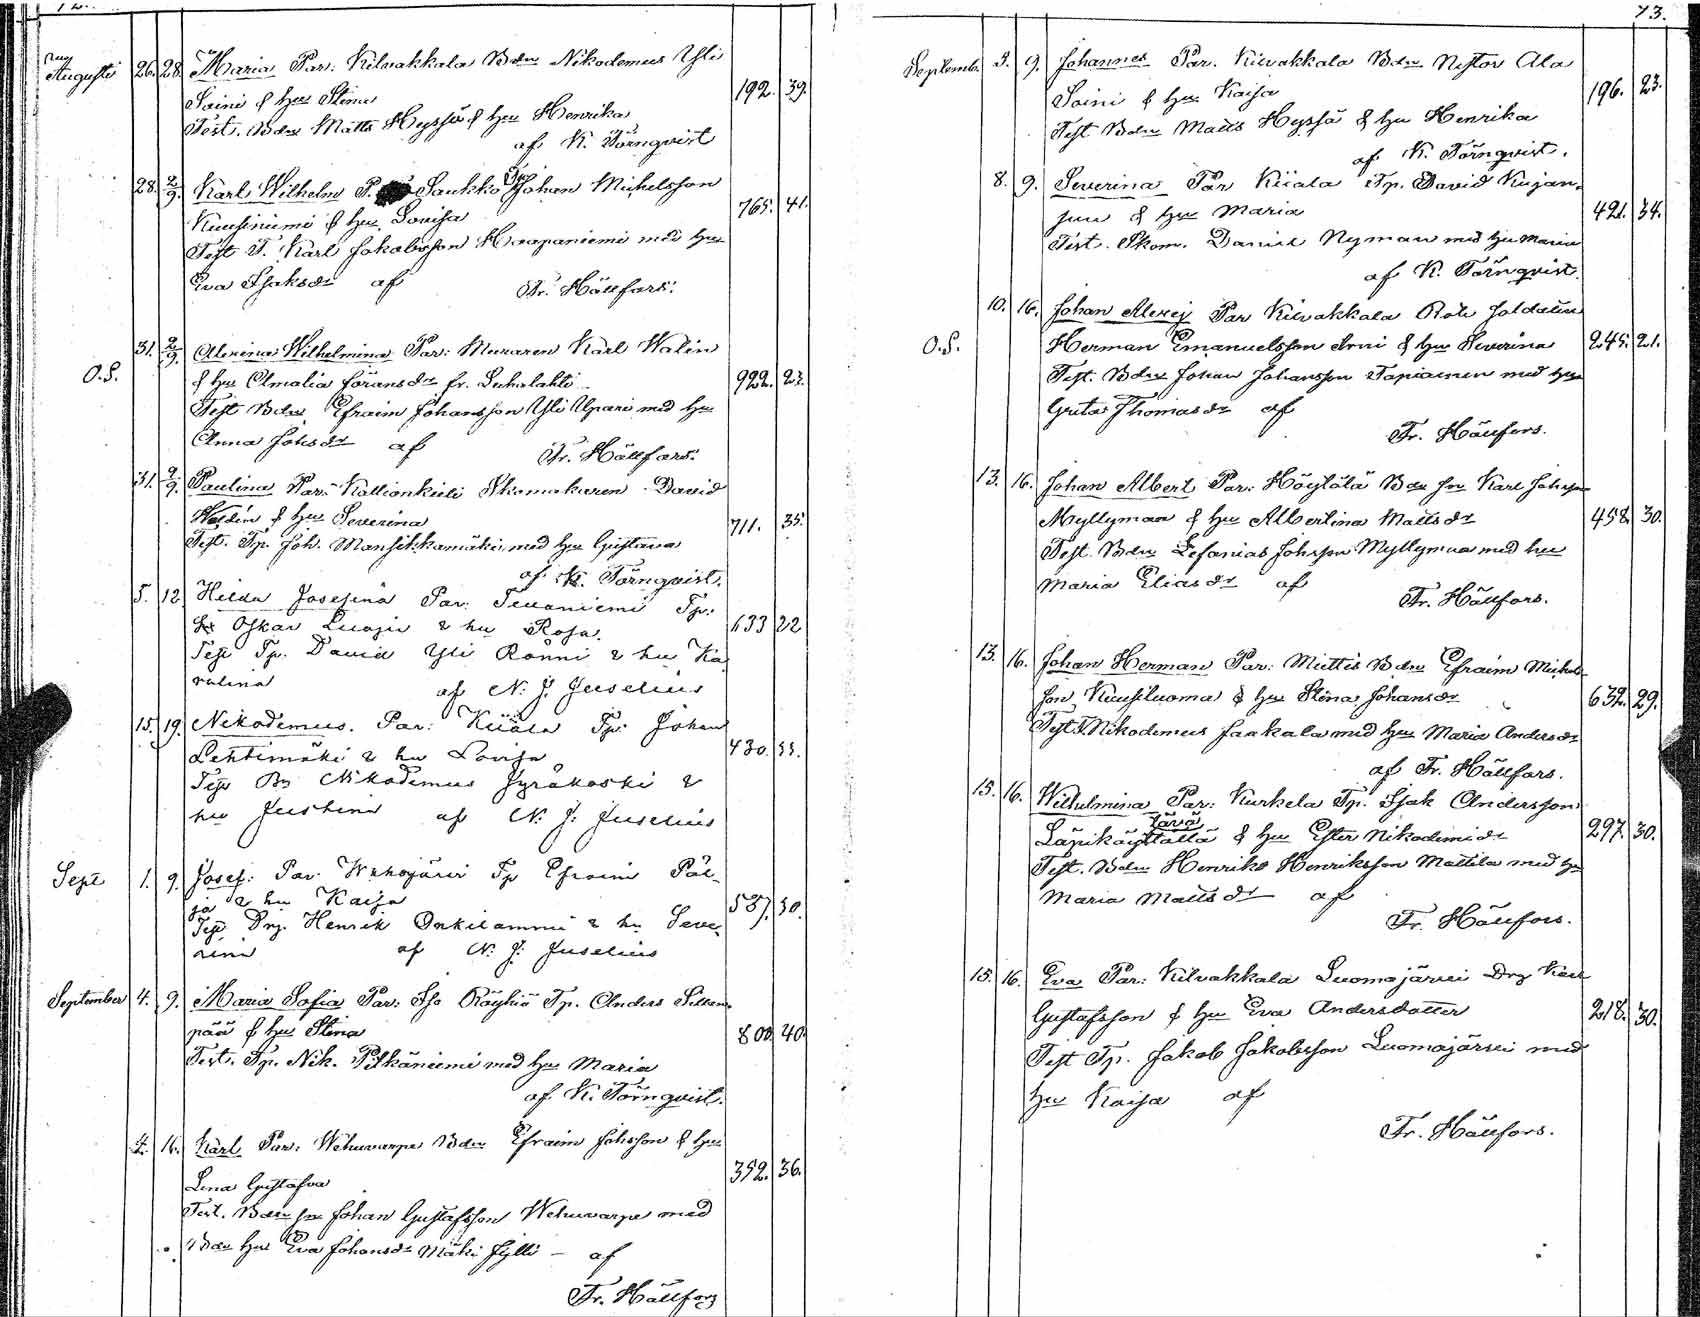 72.
Augusti 26. 28. Maria Par: Kilvakkala Bdn Nikodemus Yli
Soini & hu Stina 192. 39.
Test. Bdn Matts Heyssä & hu Henrika
af K. Törnqvist
28. 2/9. Karl Wilhelm P. Saukko Tp Johan Michelsson
Kuusiniemi & hu Lovisa 765. 41.
Test T. Karl Jakobsson Haapaniemi med hu
Eva Isaksdr af Fr. Hällfors.
31. 2/9. Alexina Wilhelmina Par: Muraren Karl Walin
O.S. & hu Amalia Göransdr fr. 922. 23.
Test Bdn Efraim Johansson Yli Upari med hu
Anna Johsdr af Fr. Hällfors.
31. 2/9. Paulina Par: Kallionkieli Skomakaren David
& hu Severina 711. 35.
Test. Tp. Joh. Mansikkamäki med hu Gustava
af K. Törnqvist.
5. 12. Hilda Josefina Par: Tevaniemi Tp:
Oskar & hu Rosa. 633 22
Test Tp. David Yli Rönni & hu Ka
rolina af N. J. Juselius
15. 19. Nikodemus. Par: Kiiala Tp: Johan
Lehtimäki & hu Lovisa 430. 33.
Test Bn Nikodemus Jyräkoski &
hu Justina af N. J. Juselius
Sept 1. 9. Josef: Par. Tp Efraim Päl-
jä & hu Kaisa 587. 30.
Test Drg. Henrik Onkilammi & hu Seve,
rina af N. J. Juselius
September 4. 9. Maria Sofia Par: Iso Röyhiö Tp. Anders Sillan-
pää & hu Stina 800 40.
Test. Tp. Nik. Pitkäniemi med hu Maria
af K. Törnqvist.
4. 16. Karl Par: Wehuvarpe Bdn Efraim Johsson & hu
Lena Gustafva 352. 36.
Test. Bdn sn Johan Gustafsson Wehuvarpe med
Bdn hu Eva Johansdr Mäki Jylli – af
Fr. Hällfors
73.
Septemb. 3. 9. Johannes Par. Kilvakkala Bdn Nestor Ala
Soini & hu Kaisa 196. 23.
Test Bdn Matts Heyssä & hu Henrika
af K. Törnqvist.
8. 9. Severina Par Kiiala Tp. David Kujan-
suu & hu Maria 421. 34.
Test. Skom. Daniel Nyman med hu Maria
af K. Törnqvist.
10. 16. Johan Alexej Par Kilvakkala Rote Soldaten
O.S. Herman Emanuelsson Arvi & hu Severina 245. 21.
Test. Bdn Johan Johansson Tapiainen med hu
Greta Thomasdr af
Fr. Hällfors.
13. 16. Johan Albert Par: Höytölä Bdn sn Karl Johsson
Myllymaa & hu Albertina Mattsdr 458. 30.
Test. Bdn Zefanias Johsson Myllymaa med hu
Maria Eliasdr af
Fr. Hällfors.
13. 16. Johan Herman Par: Miettis Bdn Efraim Michels-
son Kuusiluoma & hu Stina Johansdr 632. 29.
Test T. Nikodemus Jaakala med hu Maria Andersdr
af Fr. Hällfors.
15. 16. Wilhelmina Par: Kurkela Tp. Isak Andersson
& hu Ester Nikodemidr 297. 30.
Test. Bdn Henrik Henriksson Mattila med hu
Maria Mattsdr af
Fr. Hällfors.
15. 16. Eva Par: Kilvakkala Luomajärvi Drg Karl
Gustafsson & hu Eva Andersdotter 218. 30.
Test Tp. Jakob Jakobsson Luomajärvi med
hu Kaisa af
Fr. Hällfors.